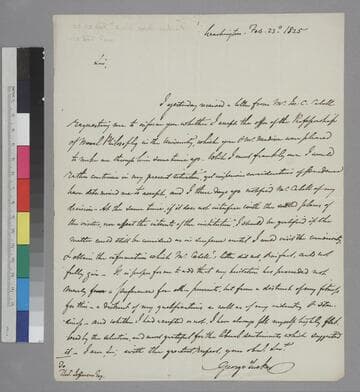 Washington. Feb. 23d 1825
Sir,
I yesterday received a letter from Mr. Jos. C. Cabell
requesting me to inform you whether I accept the offer of the Professorship
of Moral Philosophy in the University, which you & Mr. Madison were pleased
to make me through him some time ago. While I must frankly own I would
rather continue in my present situation yet considerations of Prudence
have determined me to accept, and I three days ago notified Mr. Cabell of my
decision. At the same time, if it does not interfere with the plans of
the visitors, nor affect the interests of the institution, I should be gratified if the
matter could still be considered as in suspense until I could visit the University,
& obtain the information which Mr. Cabell's letter did not, & in fact could not
fully give. It is proper for me to add that my hesitation has proceeded not
merely from a preference for other pursuits, but from a distrust of my fitness
for this - a distrust of my qualifications as well as of my industry &
- and whether I had accepted or not, I have always felt myself highly flattered
by the selection, and most grateful for the liberal sentiments which suggested
it. - I am Sir, with the greatest respect, your obedt. Servt.
George Tucker
To
Thos. Jefferson Esq.